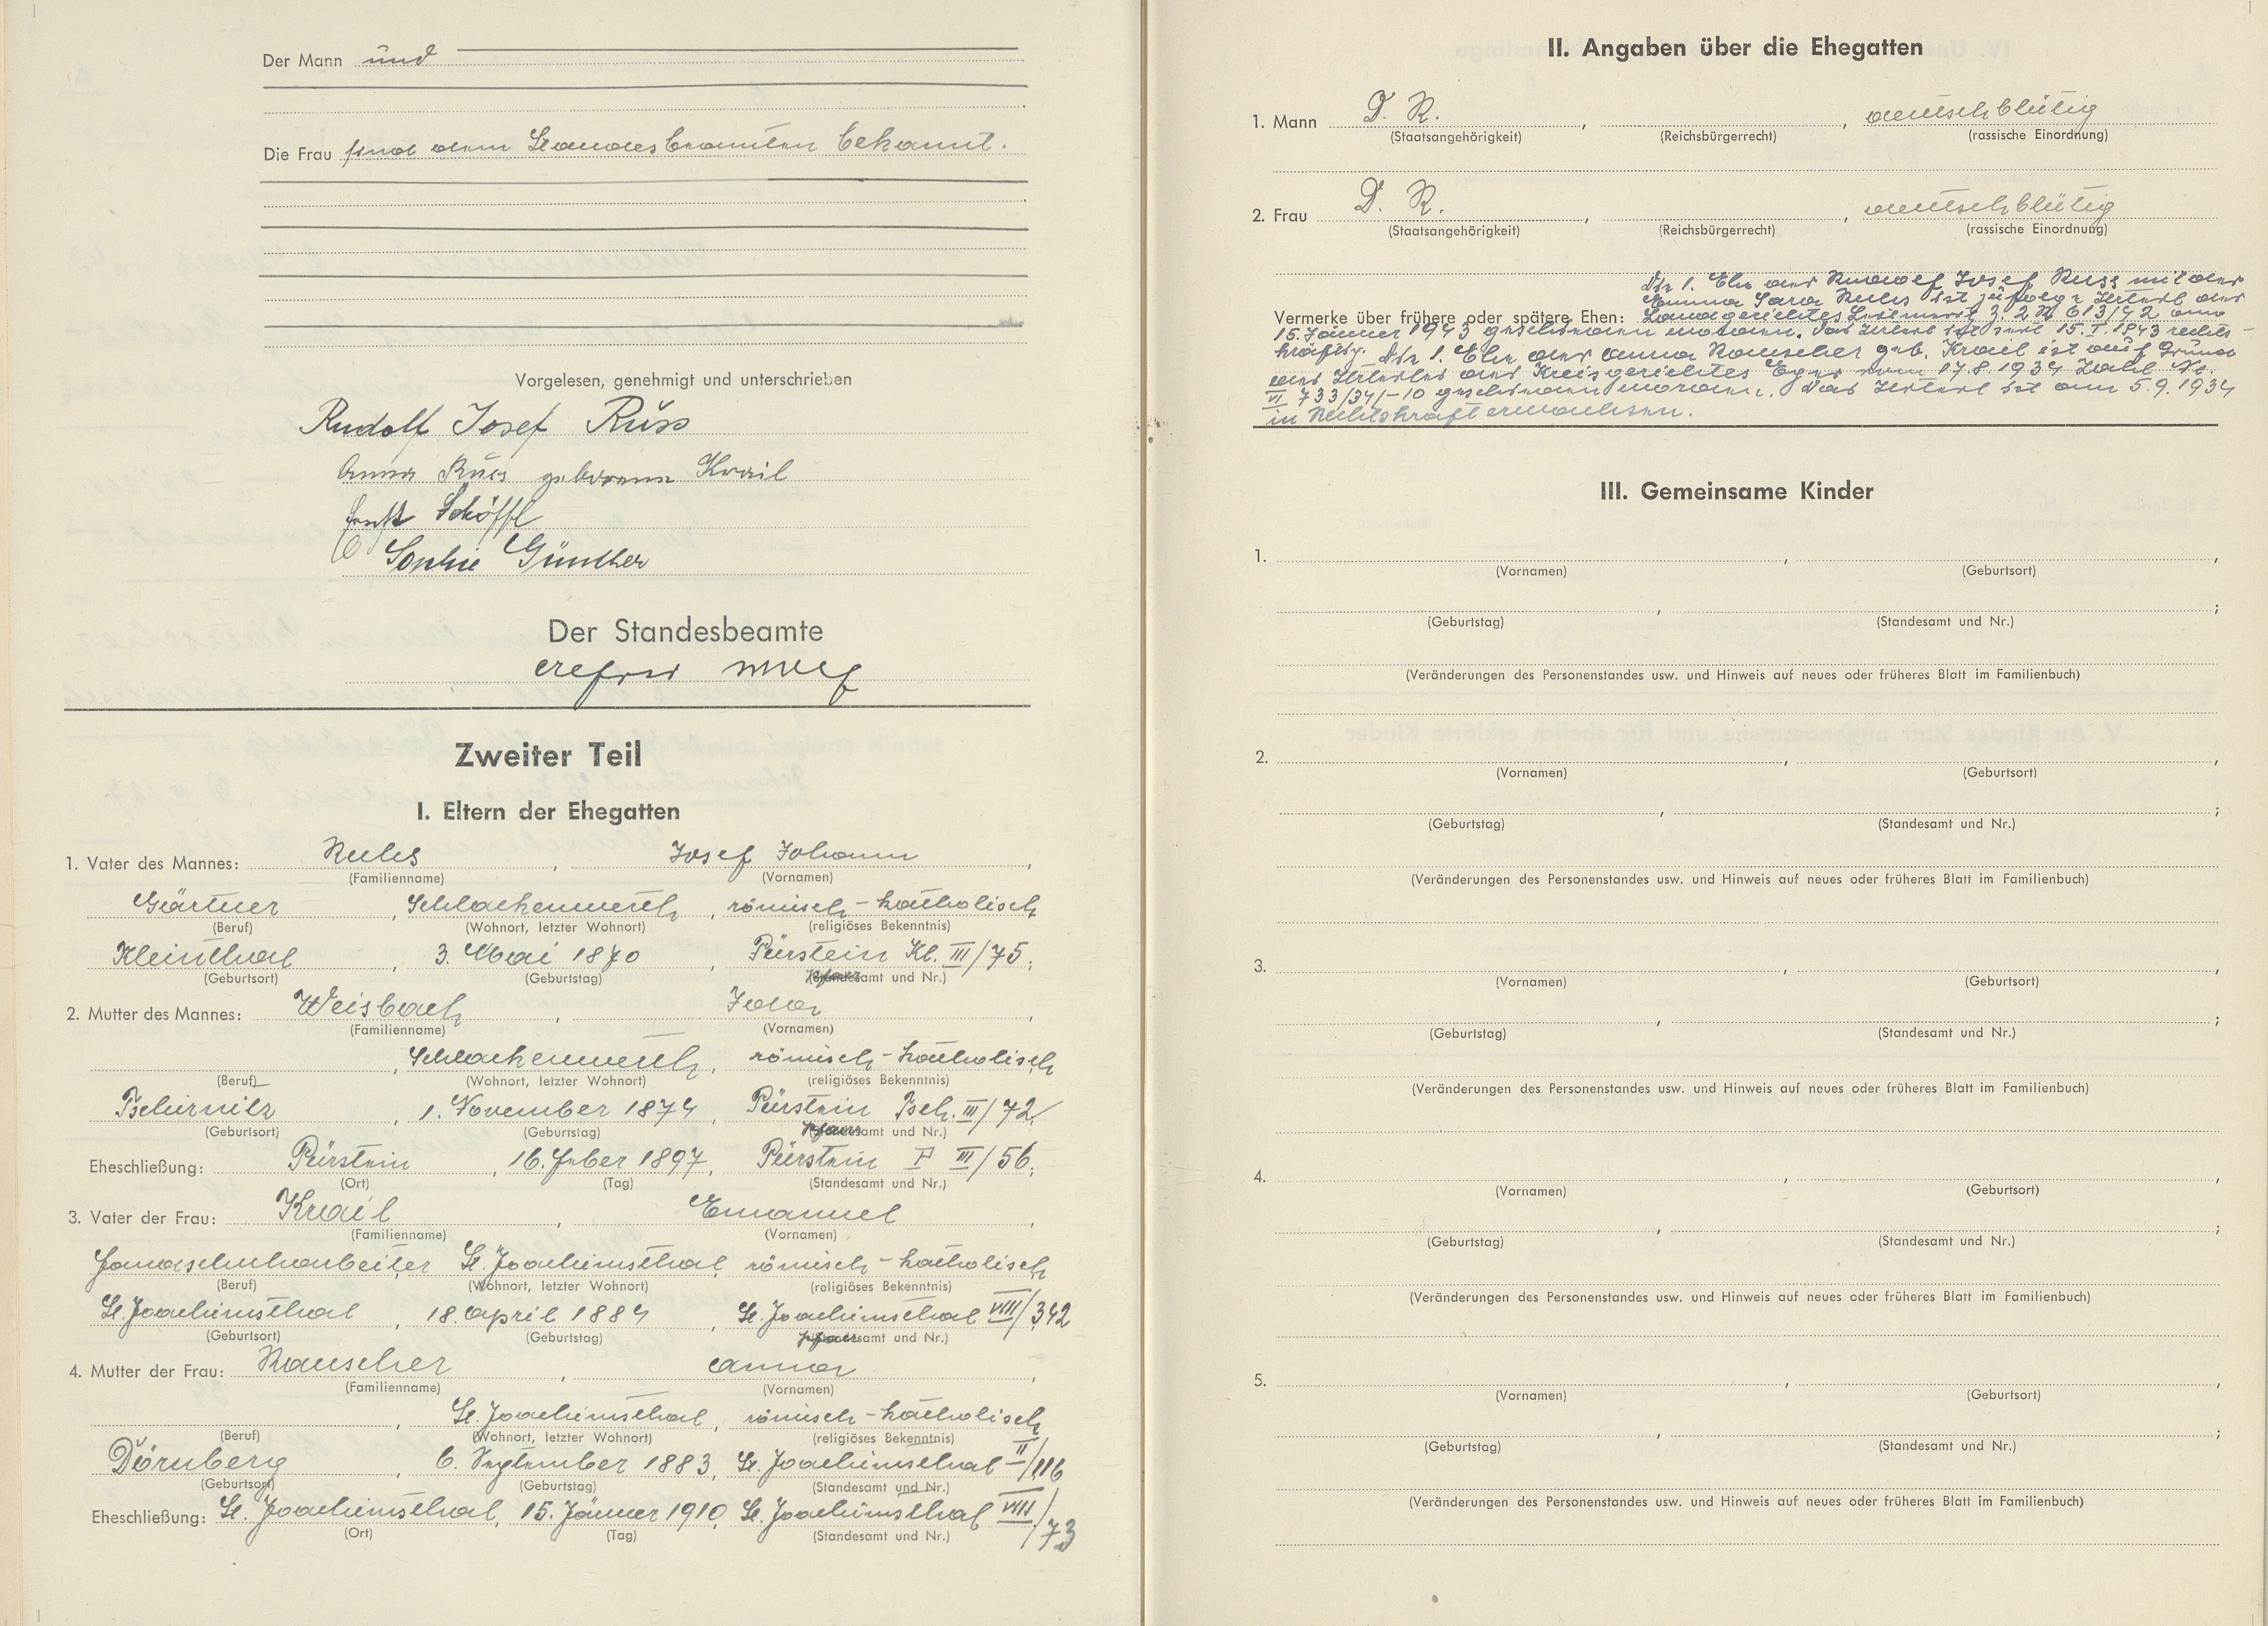 Der Mann und
Die Frau sind dem Standesbeamten bekannt.
Vorgelesen, genehmigt und unterschrieben
Rudolf Josef Russ
Anna Russ geborene Krail
Ernst Schöffl
Sophie Günther
Der Standesbeamte
Zweiter Teil
I. Eltern der Ehegatten
1. Vater des Mannes: Ruhs , Josef Johann ,
(Familienname) (Vornamen)
Gärtner , Schlackenwerth , römisch-katholisch
(Beruf) (Wohnort, letzter Wohnort) (religiöses Bekenntnis)
Kleinthal , 3. Mai 1870 , Pürstein Kl. III/75;
(Geburtsort) (Geburtstag) (Pfarramt und Nr.)
2. Mutter des Mannes: Weisbach , ,
(Familienname) (Vornamen)
, Schlackenwerth , römisch-katholisch
(Beruf) (Wohnort, letzter Wohnort) (religiöses Bekenntnis)
Tschirnitz , 1. November 1874 , Pürstein Tsch. III/72
(Geburtsort) (Geburtstag) (Pfarramt und Nr.)
Eheschließung: Pürstein , 16. Feber 1897, Pürstein P III/56;
(Ort) (Tag) (Standesamt und Nr.)
3. Vater der Frau: Krail , Emanuel ,
(Familienname) (Vornamen)
Handschuharbeiter St. Joachimsthal, römisch-katholisch
(Beruf) (Wohnort, letzter Wohnort) (religiöses Bekenntnis)
St. Joachimsthal , 18. April 1884 , St. Joachimsthal VIII/342
(Geburtsort) (Geburtstag) (Pfarramt und Nr.)
4. Mutter der Frau: Rauscher , Anna ,
(Familienname) (Vornamen)
, St. Joachimsthal, römisch-katholisch
(Beruf) (Wohnort, letzter Wohnort) (religiöses Bekenntnis)
Dörnberg , 6. September 1883, St. Joachimsthal II/116
(Geburtsort) (Geburtstag) (Standesamt und Nr.)
Eheschließung: St. Joachimsthal, 15. Jänner 1910, St. Joachimsthal VIII/73
(Ort) (Tag) (Standesamt und Nr.)
II. Angaben über die Ehegatten
1. Mann D. R. , , deutschblütig
(Staatsangehörigkeit) (Reichsbürgerrecht) (rassische Einordnung)
2. Frau D. R. , , deutschblütig
(Staatsangehörigkeit) (Reichsbürgerrecht) (rassische Einordnung)
Die 1. Ehe des Rudolf Josef Russ mit der
Emma Sara Ruhs ist zufolge Urteil des
Vermerke über frühere oder spätere Ehen: Landgerichtes Leitmeritz 3. 2 R 613/42 am
15. Jänner 1943 geschieden worden. Das Urteil ist seit 15. I. 1943 rechts-
kräftig. Die 1. Ehe der Anna Rauscher geb. Krail ist auf Grund
des Urteiles des Kreisgerichtes Eger vom 17.8.1934 Zahl Nc.
VI 733/34/-10 geschieden worden. Das Urteil ist am 5.9.1934
in Rechtskraft erwachsen.
III. Gemeinsame Kinder
1. , ,
(Vornamen) (Geburtsort)
, ;
(Geburtstag) (Standesamt und Nr.)
(Veränderungen des Personenstandes usw. und Hinweis auf neues oder früheres Blatt im Familienbuch)
2. , ,
(Vornamen) (Geburtsort)
, ;
(Geburtstag) (Standesamt und Nr.)
(Veränderungen des Personenstandes usw. und Hinweis auf neues oder früheres Blatt im Familienbuch)
3. , ,
(Vornamen) (Geburtsort)
, ;
(Geburtstag) (Standesamt und Nr.)
(Veränderungen des Personenstandes usw. und Hinweis auf neues oder früheres Blatt im Familienbuch)
4. , ,
(Vornamen) (Geburtsort)
, ;
(Geburtstag) (Standesamt und Nr.)
(Veränderungen des Personenstandes usw. und Hinweis auf neues oder früheres Blatt im Familienbuch)
5. , ,
(Vornamen) (Geburtsort)
, ;
(Geburtstag) (Standesamt und Nr.)
(Veränderungen des Personenstandes usw. und Hinweis auf neues oder früheres Blatt im Familienbuch)